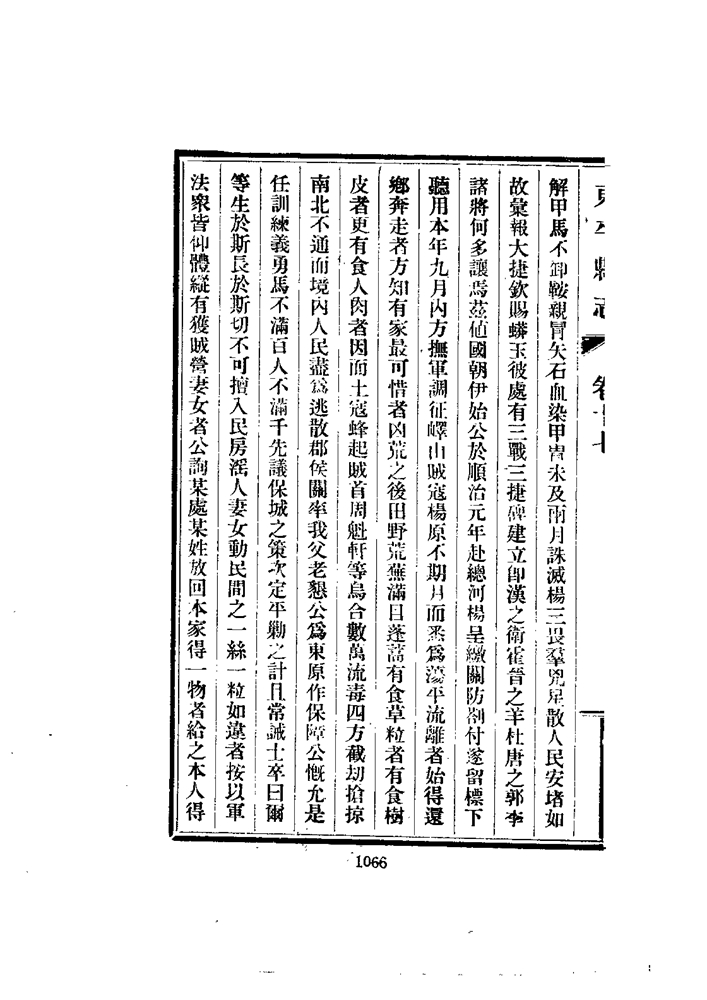 東平縣志 卷十七
解甲馬不卸鞍親冒矢石血染甲冑未及兩月誅滅楊三畏羣兇星散人民安堵如
故彙報大捷欽賜蟒玉彼處有三戰三捷碑建立卽漢之衛霍晉之羊杜唐之郭李
諸將何多讓焉茲値國朝伊始公於順治元年赴總河楊呈繳關防劄付遂留標下
聽用本年九月內方撫軍調征嶧山賊寇楊原不期月而悉爲蕩平流離者始得還
鄕奔走者方知有家最可惜者凶荒之後田野荒蕪滿目蓬蒿有食草粒者有食樹
皮者更有食人肉者因而土寇蜂起賊首周魁軒等烏合數萬流毒四方截劫搶掠
南北不通而境內人民盡爲逃散郡侯關率我父老懇公爲東原作保障公慨允是
任訓練義勇馬不滿百人不滿千先議保城之策次定平勦之計且常誡士卒曰爾
等生於斯長於斯切不可擅入民房淫人妻女動民間之一絲一粒如違者按以軍
法衆皆仰體縱有獲賊營妻女者公詢某處某姓放回本家得一物者給之本人得
1066